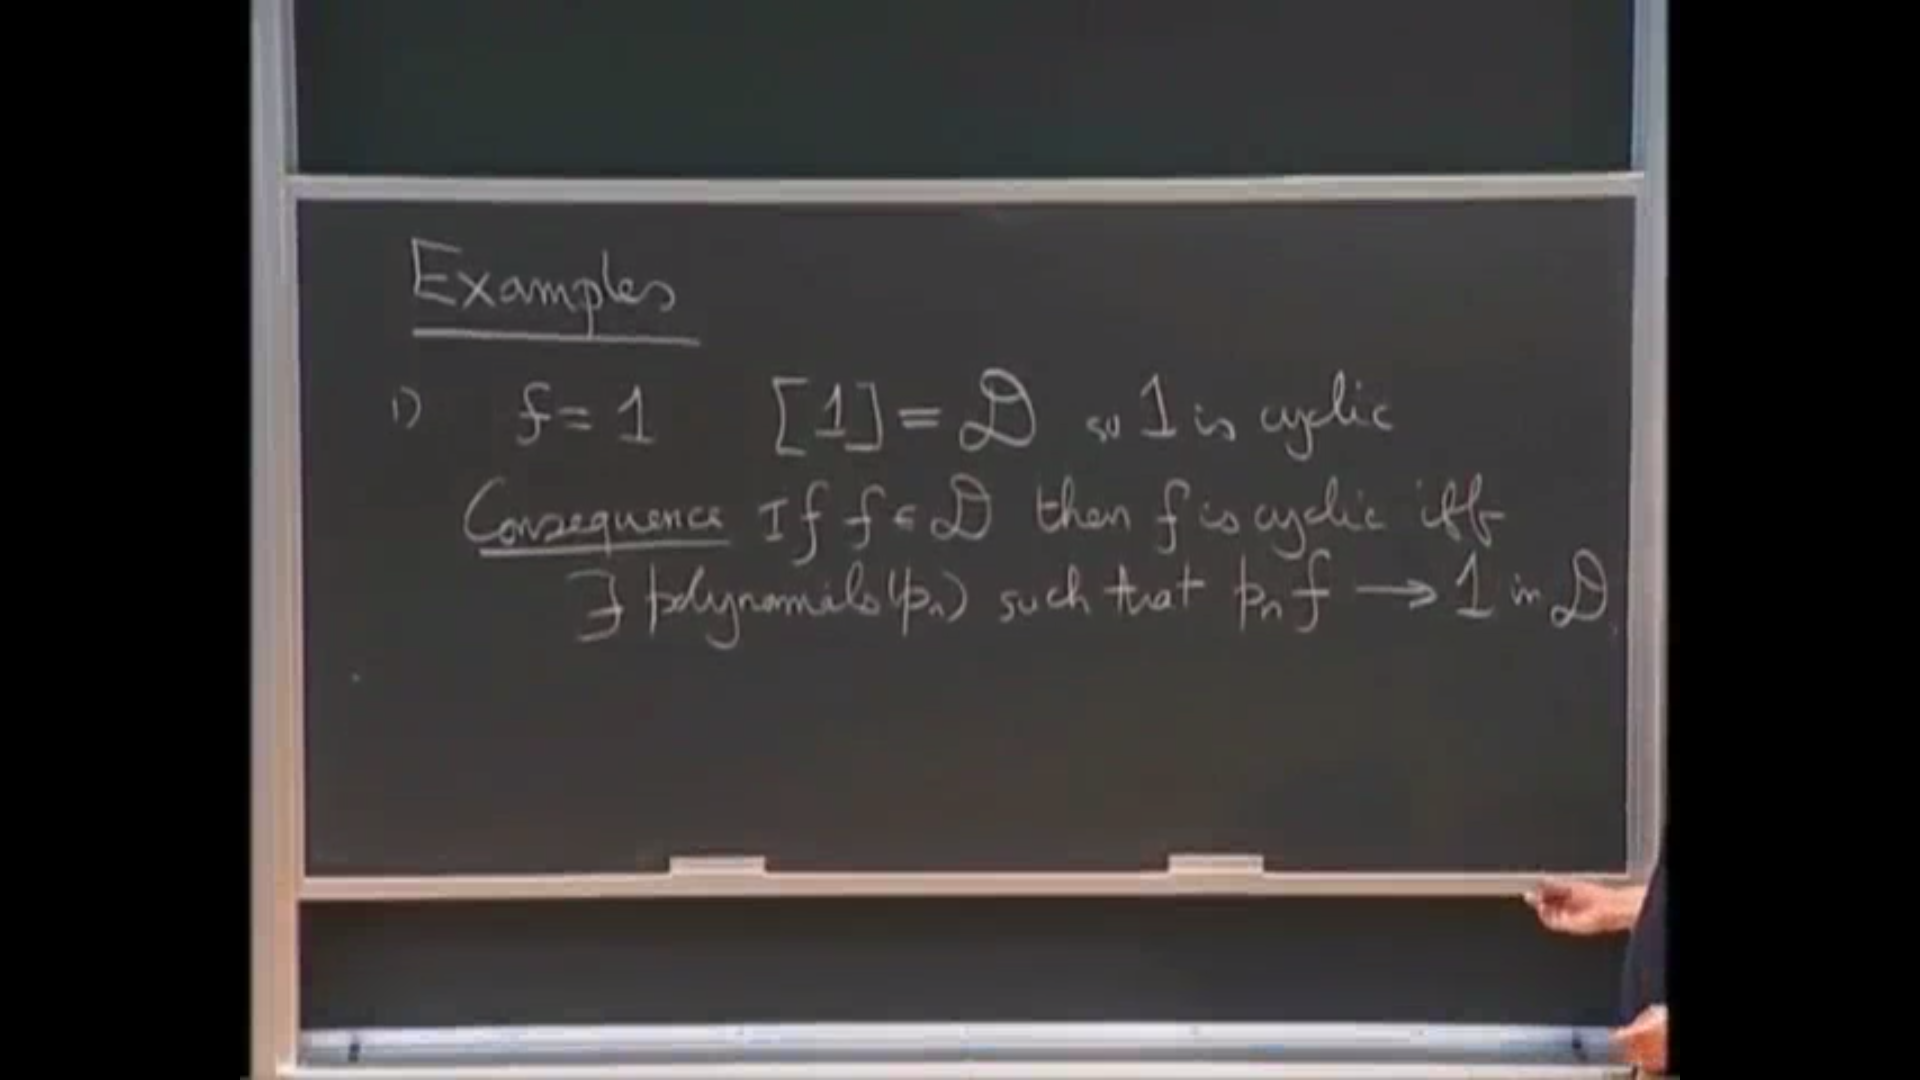 Examples
1) f = 1 [1] = 𝒟 so 1 is cyclic
Consequence If f ∈ 𝒟 then f is cyclic iff
∃ polynomials (pₙ) such that pₙ f ⟶ 1 in 𝒟.